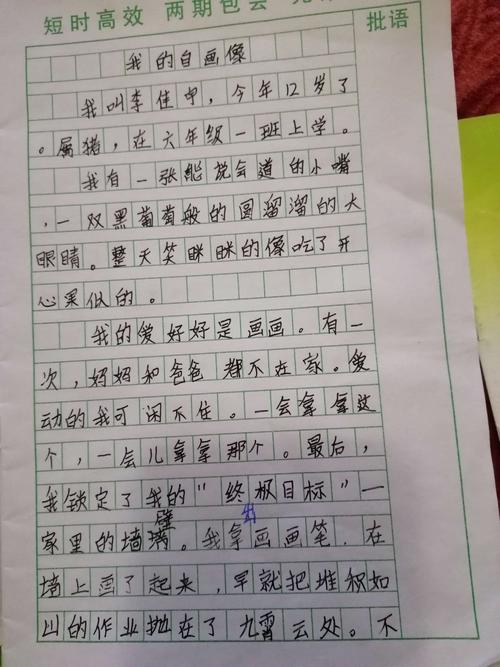 短时高效 两期包会
批语
我的自画像
我叫李佳申，今年12岁了
。属猪，在六年级一班上学。
我有一张能说会道的小嘴
，一双黑葡萄般的圆溜溜的大
眼睛。整天笑眯眯的像吃了开
心果似的。
我的爱好好是画画。有一
次，妈妈和爸爸都不在家。爱
动的我可闲不住。一会拿拿这
个，一会儿拿拿那个。最后，
我锁定了我的"终极目标"一
家里的墙壁。我拿出画画笔，在
墙上画了起来，早就把堆积如
山的作业抛在了九霄云处。不